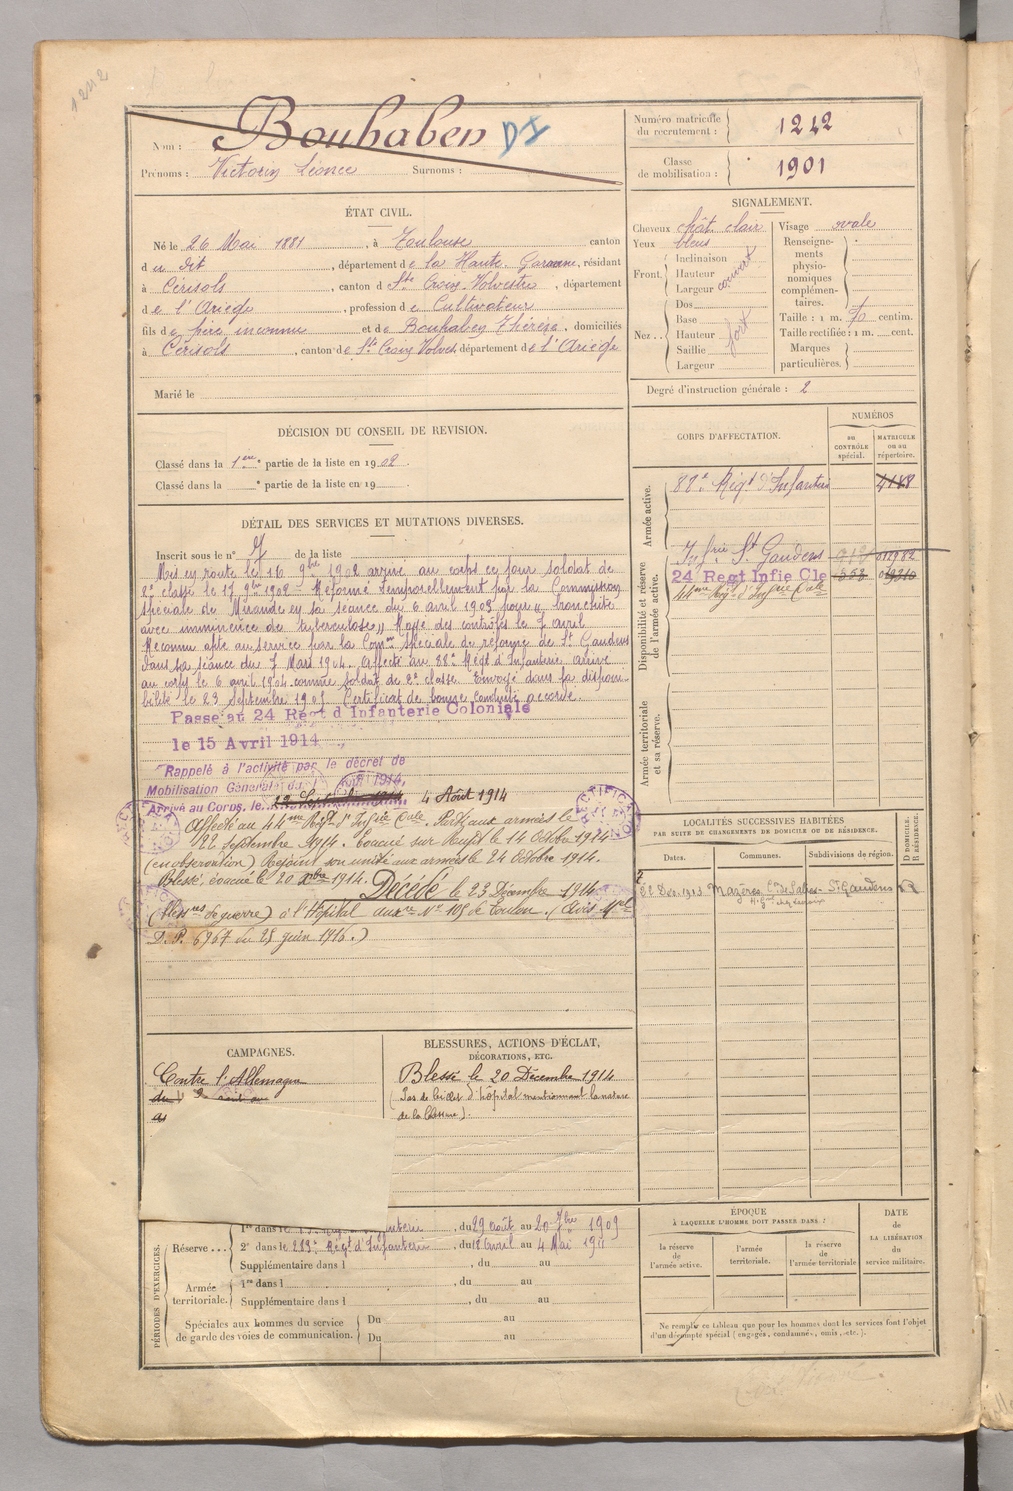 1212
Nom : Bouhaben DI
Prénoms : Victorin Léonce Surnoms :
Numéro matricule du recrutement : 1212
Classe de mobilisation : 1901
ÉTAT CIVIL.
Né le 26 Mai 1881, à Toulouse canton
du dit, département de la Haute-Garonne, résidant
à Cérisols, canton de Ste Croix-Volvestre, département
de l'Ariège, profession de Cultivateur
fils de père inconnu et de Bouhaben Thérèse, domiciliés
à Cérisols, canton de Ste Croix Volvest, département de l'Ariège
Marié le
SIGNALEMENT.
Cheveux chât. clair
Yeux bleus
Front. Inclinaison
Hauteur couvert
Largeur
Nez.. Dos
Base
Hauteur fort
Saillie
Largeur
Visage ovale
Renseignements physionomiques complémentaires.
Taille : 1 m. 70 centim.
Taille rectifiée : 1 m. cent.
Marques particulières.
Degré d'instruction générale : 2
DÉCISION DU CONSEIL DE REVISION.
Classé dans la 1ère partie de la liste en 1902.
Classé dans la e partie de la liste en 19
CORPS D'AFFECTATION.
NUMÉROS
au CONTRÔLE spécial.
MATRICULE ou au répertoire.
Armée active.
Disponibilité et réserve de l'armée active.
Armée territoriale et sa réserve.
Infrie St Gaudens
24 Regt Infie Cle
44me Régt d'Infrie Cale
DÉTAIL DES SERVICES ET MUTATIONS DIVERSES.
Inscrit sous le n° 7 de la liste
Mis en route le 16 9bre 1902 arrivé au corps ce jour soldat de
2e classe le 17 9bre 1902 - Réformé temporellement par la Commission
spéciale de Mirande en sa séance du 6 avril 1903 pour « bronchite
avec imminence de tuberculose » Rayé des contrôles le 7 avril
Reconnu apte au service par la Comon spéciale de réforme de St Gaudens
dans sa séance du 7 Mars 1904. Affecté au 88e Régt d'Infanterie arrivé
au corps le 6 avril 1904 comme soldat de 2e classe. Envoyé dans la disponi-
bilité le 23 Septembre 1905 Certificat de bonne conduite accordé.
Passé au 24 Régt d'Infanterie Coloniale
le 15 Avril 1914
Rappelé à l'activité par le décret de
Mobilisation Générale du 1er Août 1914,
Arrivé au Corps, le 22 Septembre 1914 4 Août 1914
RECTIFICATION
Affecté au 44me Régt d'Infrie Cale. Parti aux armées le
22 septembre 1914. Evacué sur le 14 Octobre 1914
(en observation) Rejoint son unité aux armées le 24 Octobre 1914.
Blessé, évacué le 20 Xbre 1914. Décédé le 23 Décembre 1914
(blesses de guerre) à l'Hôpital auxre N° 105 de Toulon. (Avis Mel
D. P. 6967 du 25 juin 1916.)
LOCALITÉS SUCCESSIVES HABITÉES
PAR SUITE DE CHANGEMENTS DE DOMICILE OU DE RÉSIDENCE.
Dates. Communes. Subdivisions de région. D DOMICILE. R RÉSIDENCE.
22 Déc. 1913 Mazères Con de Salies - St Gaudens R
CAMPAGNES.
Contre l'Allemagne
du
BLESSURES, ACTIONS D'ÉCLAT,
DÉCORATIONS, ETC.
Blessé le 20 Décembre 1914
(Pas de billet d'hôpital mentionnant la nature
de la blessure).
PÉRIODES D'EXERCICES.
Réserve... 1re dans le, du 29 août au 20 7bre 1909
2e dans le 283e Régt d'Infanterie, du 18 avril au 4 Mai 1911
Supplémentaire dans l, du au
Armée territoriale. 1re dans l, du au
Supplémentaire dans l, du au
Spéciales aux hommes du service de garde des voies de communication. Du au
Du au
ÉPOQUE
À LAQUELLE L'HOMME DOIT PASSER DANS :
la réserve de l'armée active.
l'armée territoriale.
la réserve de l'armée territoriale
DATE de LA LIBÉRATION du service militaire.
Ne remplir ce tableau que pour les hommes dont les services font l'objet
d'un décompte spécial (engagés, condamnés, omis, etc.).